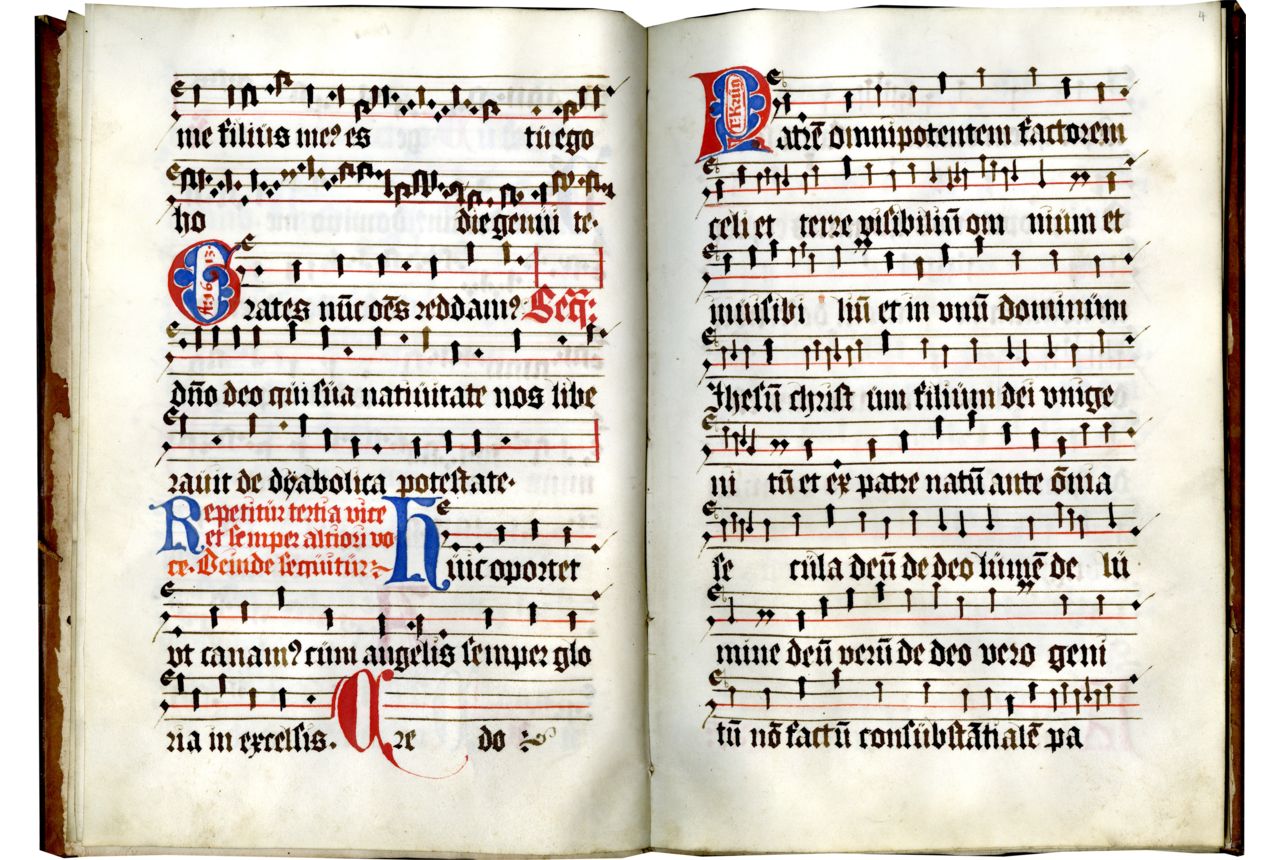 me filius me⁹ es tu ego
ho die genui te.
A: 1613.
Grates nūc oēs reddam⁹ Seq̄:
dn̄o deo qui sua natiuitate nos libe
rauit de dyabolica potestate.
Repetitur tertia vice
et semper altiori vo
ce. Deinde sequitur:
Huic oportet
vt canam⁹ cum angelis semper glo
ria in excelsis. Cre do
4
Patrē omnipotentem factorem
celi et terre visibiliū om nium et
inuisibi liū et in vnū dominum
Jhesū christ um filium dei vnige
ni tū et ex patre natū ante om̄ia
se cula deū de deo lumē de lu
mine deū verū de deo vero geni
tū nō factū consubstātialē pa